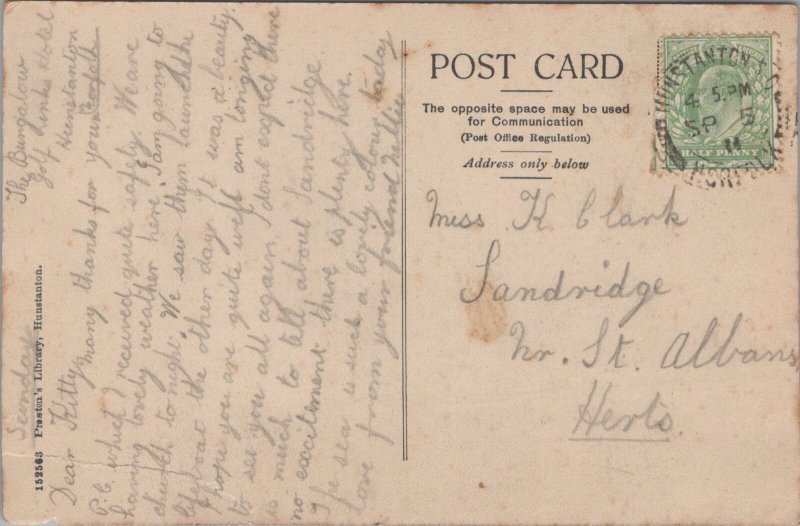 POST CARD
The opposite space may be used
for Communication
(Post Office Regulation)
Address only below
HUNSTANTON S.O.
4 5.PM
SP 5
11
NORFOLK
HALF PENNY
Miss K Clark
Sandridge
Nr. St. Albans
Herts.
The Bungalow
Golf Links Hotel
Hunstanton
Norfolk
Sunday
Dear Kitty many thanks for your
P.C. which I received quite safely. We are
having lovely weather here I am going to
church to night. We saw them launch the
lifeboat the other day it was a beauty.
I hope you are quite well am longing
to see you all again I dont expect there
is much to tell about Sandridge
no excitement there is plenty here.
The sea is such a lovely colour today
love from your friend Nellie
152563 Preston's Library, Hunstanton.